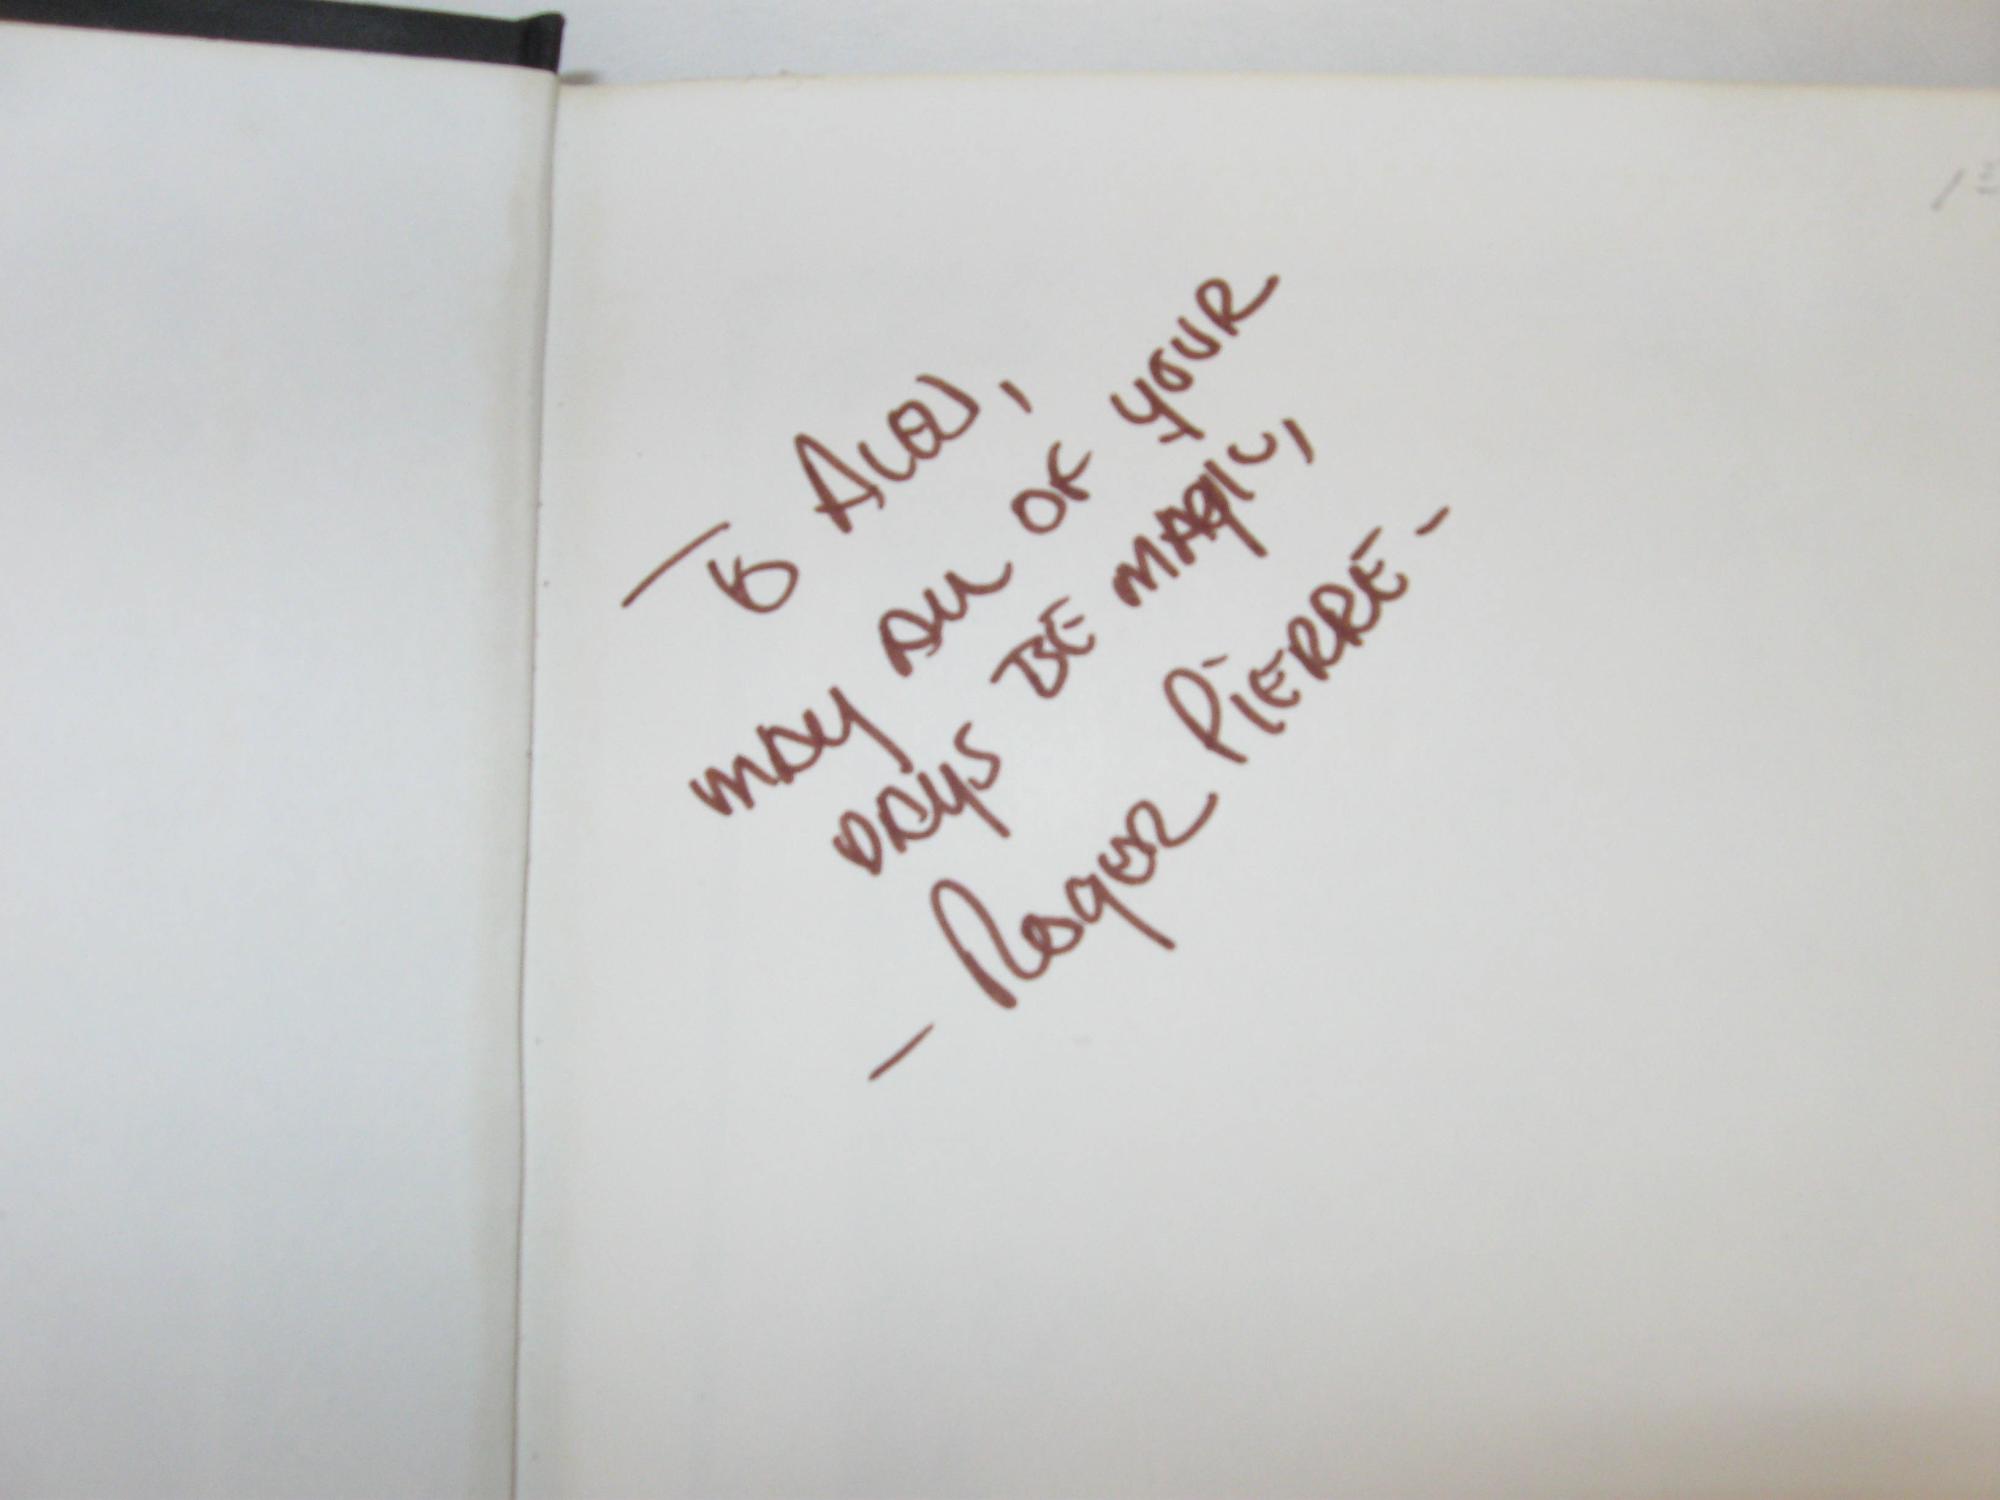 To Alan,
MAY ALL OF YOUR
DAYS BE MAGIC,
- ROGER PIERRE -